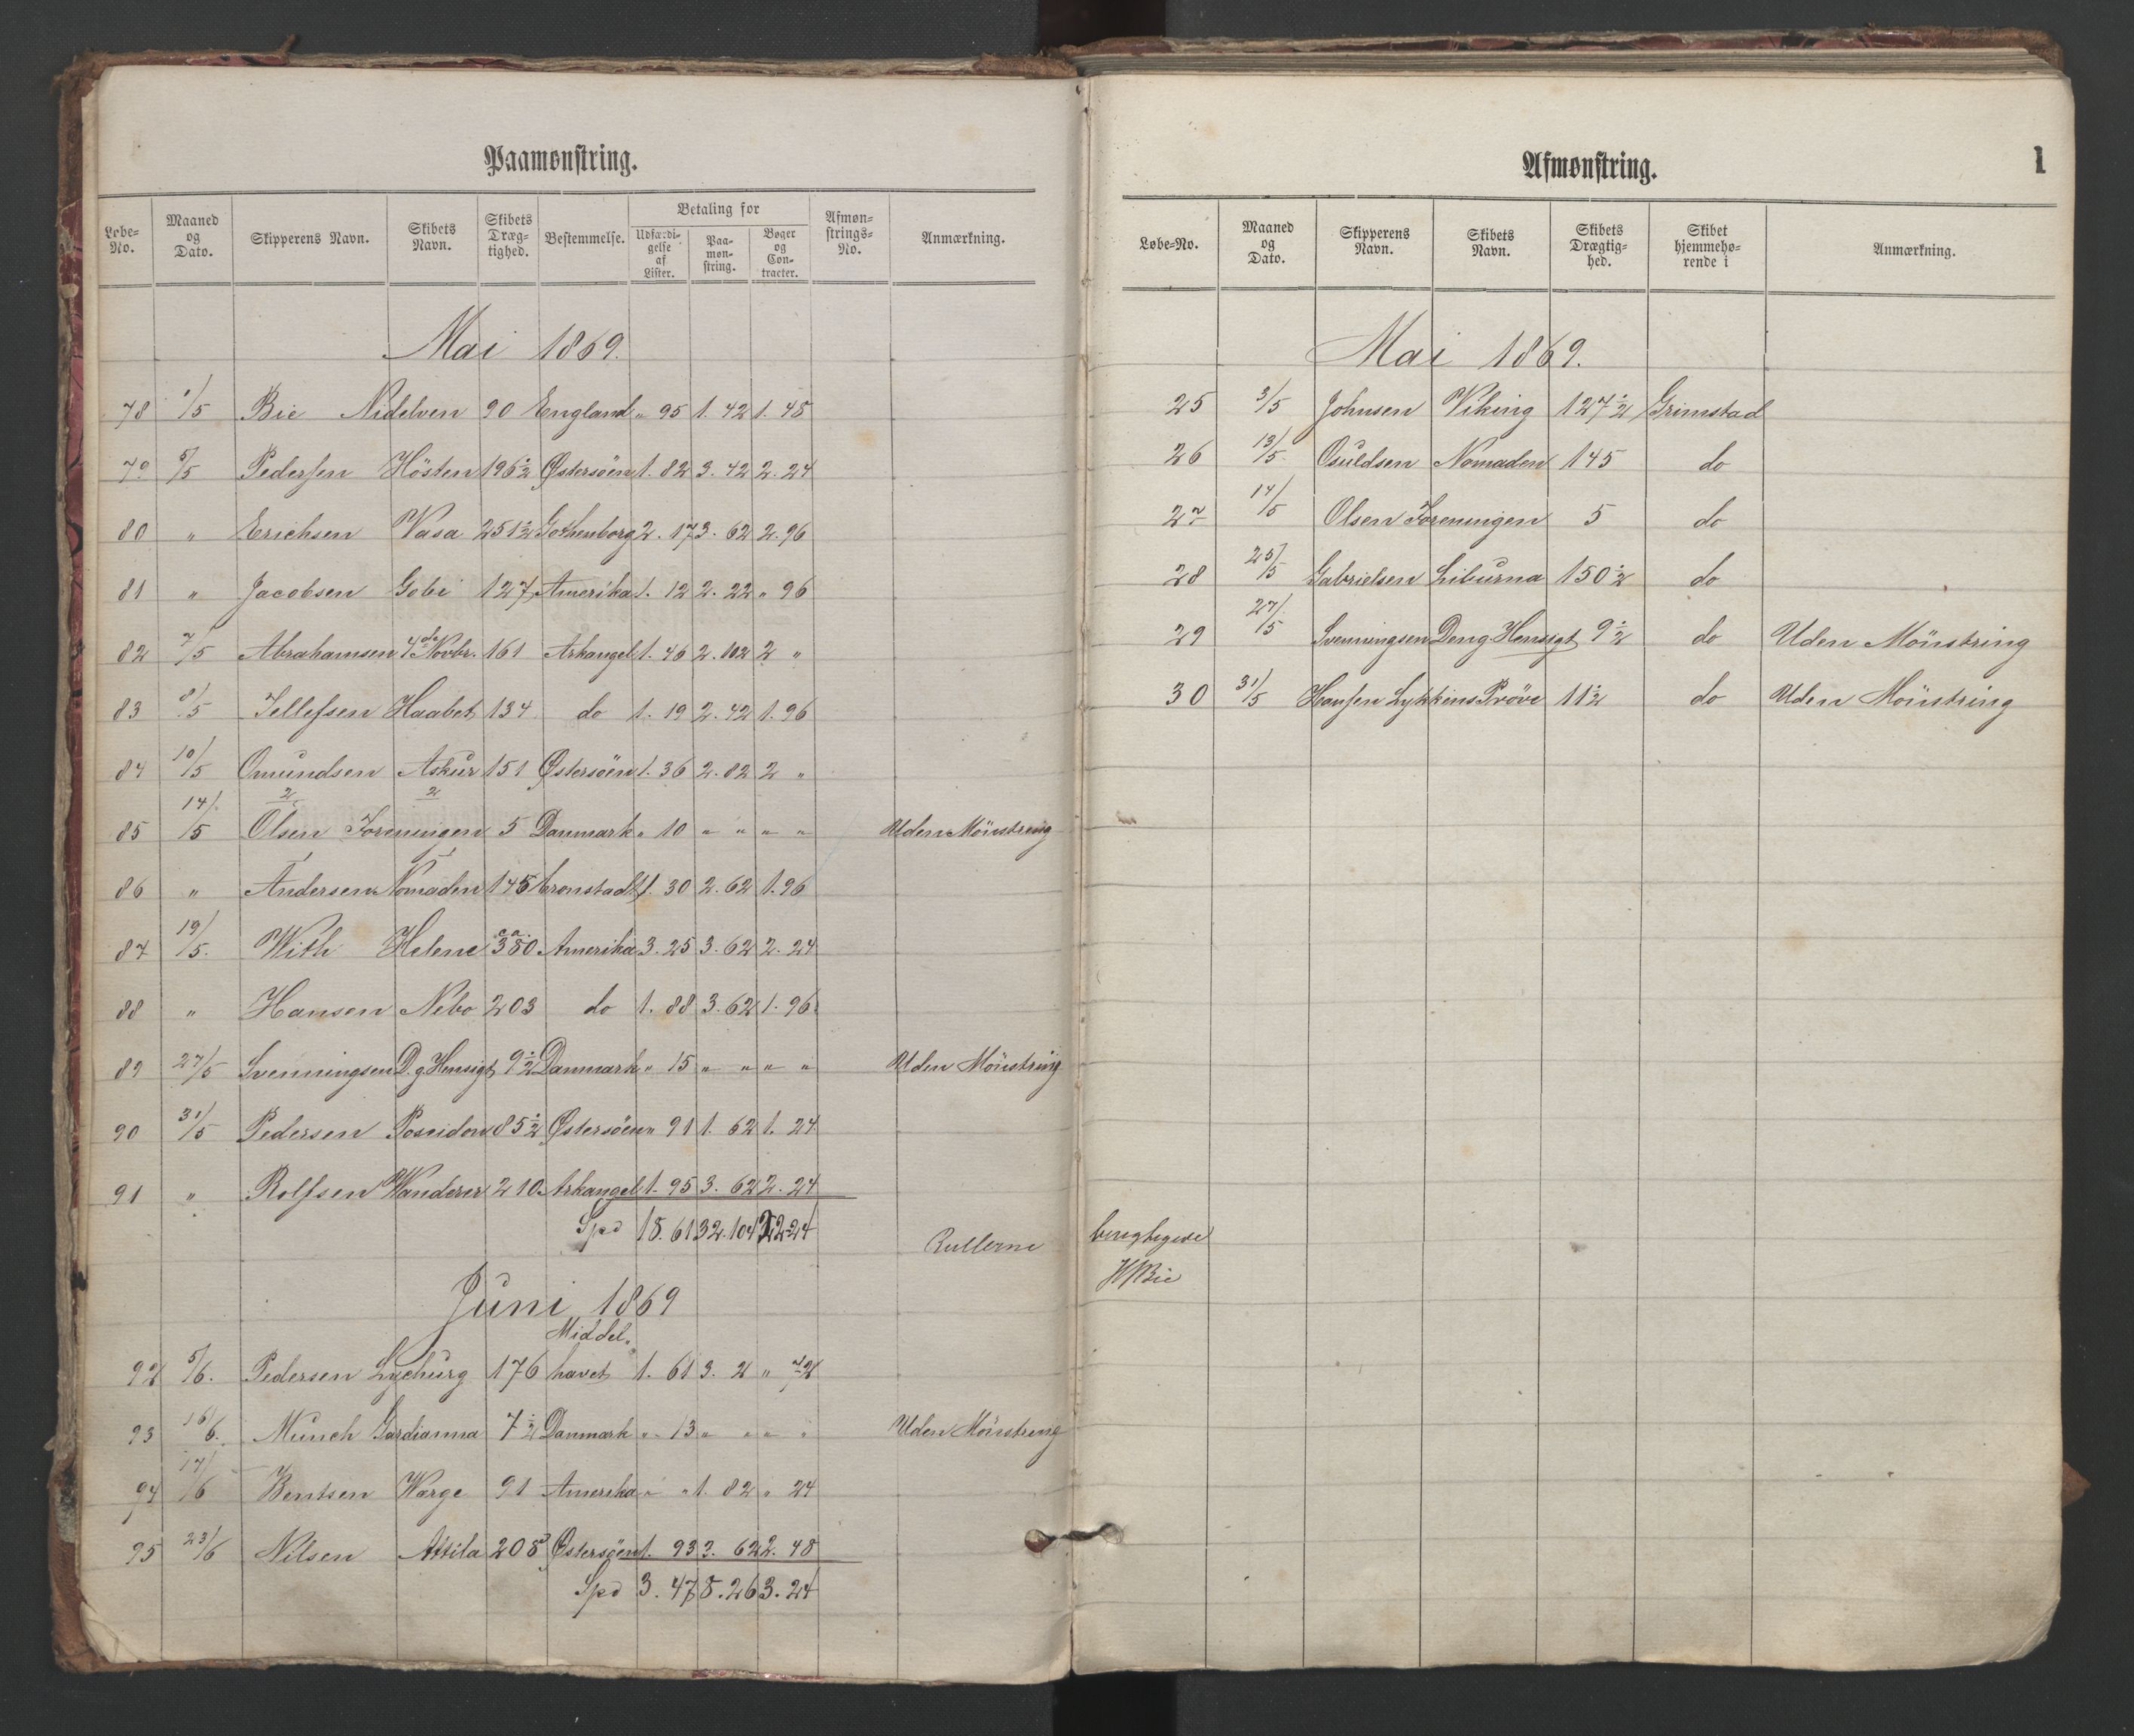 Paamønstring.
Løbe-No. | Maaned og Dato. | Skipperens Navn. | Skibets Navn. | Skibets Dræg-tighed. | Bestemmelse. | Betaling for | Udfærdi-gelse af Lister. | Paa-møn-string. | Bøger og Con-tracter. | Afmøn-strings-No. | Anmærkning.
Mai 1869.
78 1/5 Bie Nidelven 90 England " 95 1. 42 1. 48
79 5/5 Pedersen Hösten 196 1/2 Østersöen 1. 82 3. 42 2. 24
80 " Erichsen Vasa 251 1/2 Gothenborg 2. 17 3. 62 2. 96
81 " Jacobsen Gobi 127 Amerika 1. 12 2. 22 " 96
82 7/5 Abrahamsen 4de Novbr. 161 Arkangel 1. 46 2. 102 2 "
83 8/5 Tellefsen Haabet 134 do 1. 19 2. 42 1. 96
84 10/5 Omundsen Askur 151 Østersöen 1. 36 2. 82 2 "
2 2
85 14/5 Olsen Foreningen 5 Danmark " 10 " " " " Uden Mönstring
86 " Andersen Nomaden 145 Cronstadt 1. 30 2. 62 1. 96
87 19/5. With Helene ca. 380 Amerika 3. 25 3. 62 2. 24
88 " Hansen Nebo 203 do 1. 88 3. 62 1. 96
89 27/5 Svenningsen D. g. Hensigt 9 1/2 Danmark " 15 " " " " Uden Mönstring
90 31/5 Pedersen Poseidon 85 1/2 Østersöen " 91 1. 62 1. 24
91 " Rolfsen Wanderer 210 Arkangel 1. 95 3. 62 2. 24
Spd 18. 61 32. 104 22. 24
Rullerne
Juni 1869
Middel-
92 5/6. Pedersen Lycburg 176 havet 1. 61 3. 2 " 72
93 16/6. Münch Gardianna 7 1/2 Danmark " 13 " " " " Uden Mönstring
94 17/6 Bentsen Warge 91 Amerika " " 1. 82 " 24
95 23/6 Nilsen Attila 208 Østersöen 1. 93 3. 62 2. 48
Spd 3. 47 8. 26 3. 24
Afmønstring.
1
Løbe-No. | Maaned og Dato. | Skipperens Navn. | Skibets Navn. | Skibets Drægtig-hed. | Skibet hjemmehø-rende i | Anmærkning.
Mai 1869.
25 3/5 Johnsen Viking 127 1/2 Grimstad
26 13/5. Osuldsen Nomaden 145 do
27 14/5 Olsen Foreningen 5 do
28 25/5 Gabrielsen Liburna 150 1/2 do
29 27/5 Svenningsen Den g Hensigt 9 1/2 do Uden Mönstring
30 31/5 Hansen Lykkens Pröve 11 1/2 do Uden Mönstring
HBie